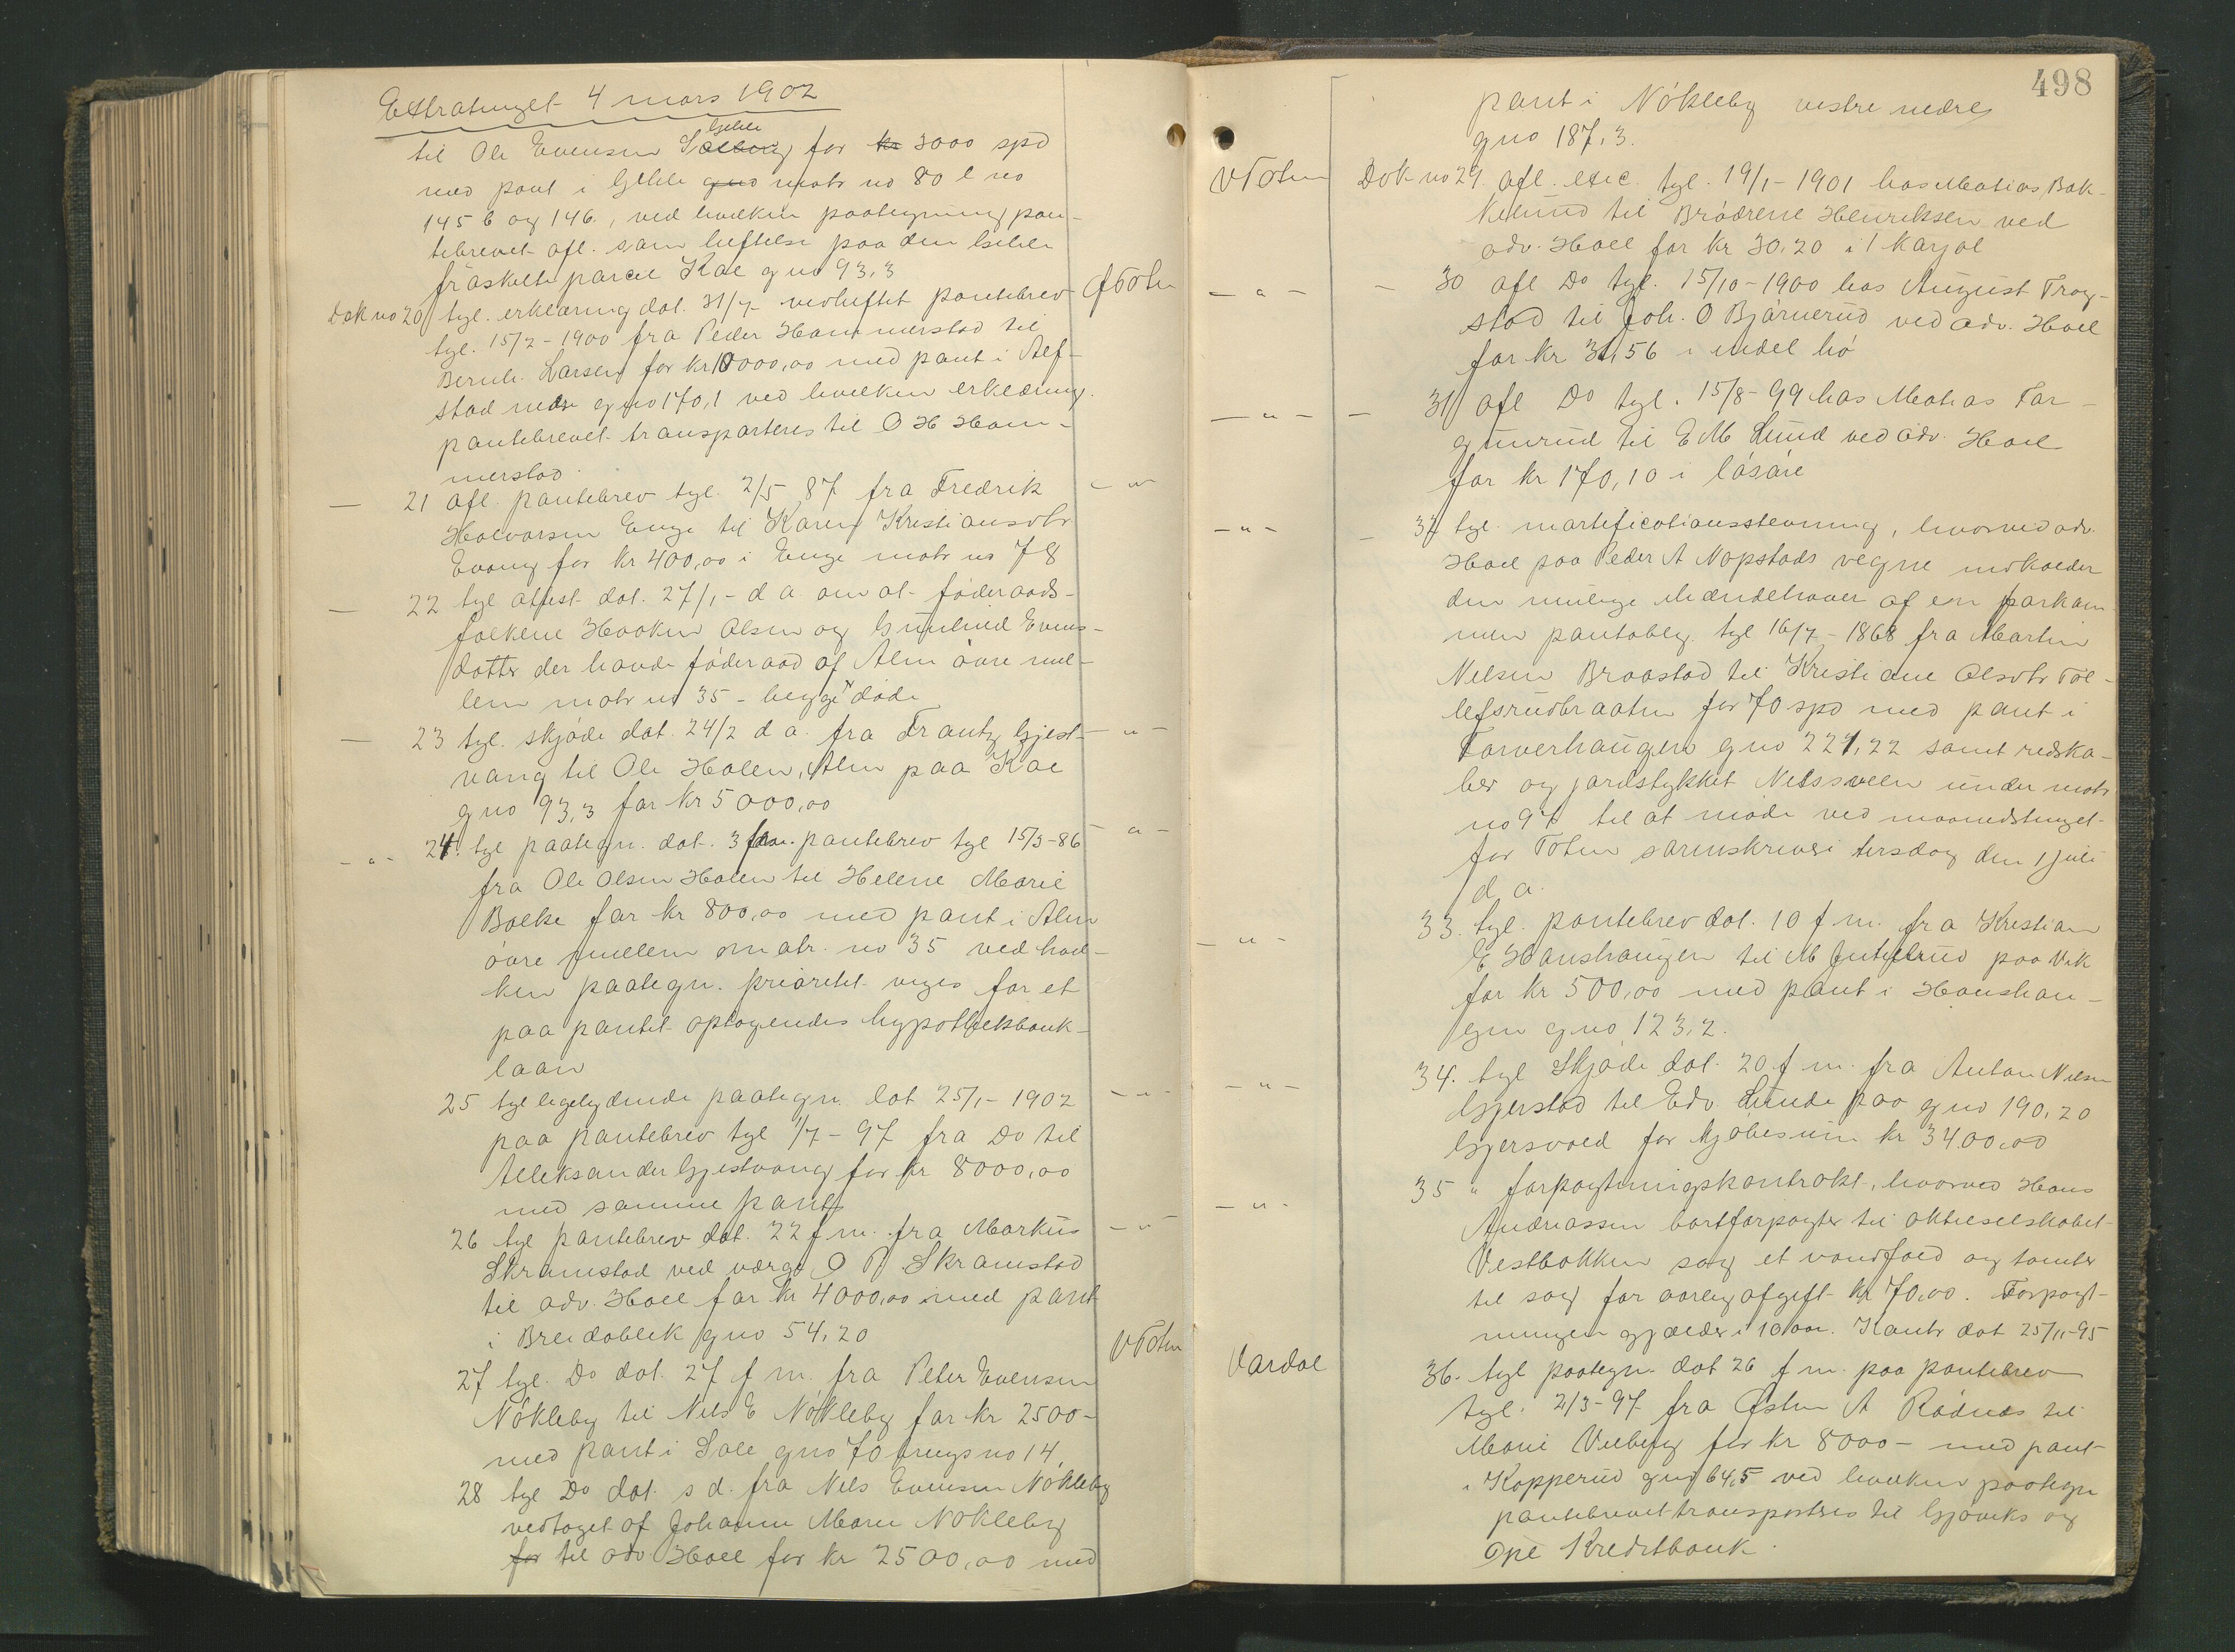 Extratinget 4 mars 1902
til Ole Evensen Gihle for kr 3000 spd
med pant i Gihle gno matr no 80 l no
145 b og 146, ved hvilken paategning pan-
tebrevet afl. som heftelse paa den Gihle
fraskilte parcel Kal gno 93,3
Dok no 20 tgl. erklæring dat. 31/7 vedheftet pantebrev
ØToten
tgl. 15/2-1900 fra Peder Hammerstad til
Bernh. Larsen for kr 10000,00 med pant i Alf-
stad nedre gno 170,1 ved hvilken erklæring
pantebrevet transporteres til O H Ham-
merstad.
— 21 afl. pantebrev tgl. 2/5 87 fra Fredrik
- " -
Halvorsen Enge til Karen Kristiansdtr
Evang for kr 400,00 i Enge matr no 78
— 22 tgl attest dat. 27/1 - d a. om at föderaads-
folkene Haaken Olsen og Gunhild Evens-
datter der havde föderaad af Alm övre mel-
lem matr no 35 - begge döde
— 23 tgl. skjöde dat. 24/2 d a. fra Frantz Gjest-
- " -
vang til Ole Holen, Alm paa Kal
gno 93,3 for kr 5000,00
- " - 24. tgl paategn. dat. 3 pantebrev tgl 15/3-86
- " -
fra Ole Olsen Holen til Helene Marie
Bolke for kr 800,00 med pant i Alm
övre mellem matr. no 35 ved hvil-
ken paategn. prioritet viges for et
paa pantet optagendes hypothekbank-
laan
25 tgl ligelydende paategn. dat 25/1-1902
- " -
paa pantebrev tgl 1/7-97 fra Do til
Alleksander Gjestvang for kr 8000,00
med samme pant
26 tgl pantebrev dat. 22 f m. fra Markus
- " -
Skramstad ved værge O P Skramstad
til adv. Hoel for kr 4000,00 med pant
i Breidablik gno 54,20
VToten
27 tgl. Do dat. 27 f m. fra Peter Evensen
Nökleby til Nils E Nökleby for kr 2500-
med pant i Sole gno 70 brugsno 14.
28 tgl Do dat. s d. fra Nils Evensen Nökleby
vedtaget af Johanne Marie Nökleby
for til adv Hoel for kr 2500,00 med
498
pant i Nökleby vestre nedre
gno 187,3.
VToten
Dok no 29 afl. exec. tgl. 19/1-1901 hos Matias Bak-
kelund til Brödrene Henriksen ved
adv. Hoel for kr 30,20 i 1 karjol
- " -
- 30 afl Do tgl. 15/10-1900 hos August Trog-
stad til Joh. O Bjørnerud ved adv. Hoel
for kr 31,56 i endel hö
- " -
- 31 afl Do tgl. 15/8-99 hos Matias Far-
gunrud til E M Lund ved adv. Hoel
for kr 170,10 i lösöre
- " -
- 32 tgl. mortificationsstevning, hvorved adv.
Hoel paa Peder A Nopstads vegne indkalder
den mulige ihændehaver af en forkom-
men pantoblg. tgl 16/7-1868 fra Martin
Nilsen Braastad til Kristiane Olsdtr Tol-
lefsrudbraaten for 70 spd med pant i
Farverhaugen gno 221,22 samt redska-
ber og jordstykket Nilssveen under matr
no 97 til at möde ved maanedstinget
for Toten sorenskriveri tirsdag den 1 juli
d a.
- " -
33. tgl. pantebrev dat. 10 f m. fra Kristian
E Hanshaugen til M Intelhus paa Vik
for kr 500,00 med pant i Hanshau-
gen gno 123,2.
- " -
34. tgl Skjöde dat. 20 f m. fra Anton Nilsen
Gjerstad til Edv. Lunde paa gno 190,20
Gjersvold for kjöbesum kr 3400,00
- " -
35 " forpagtningskontrakt, hvorved Hans
Andreassen bortforpagter til aktieselskabet
Vestbakken sag et vandfald og tomter
til sag for aarlig afgift kr 70,00. Forpagt-
ningen gjælder i 10 aar. Kontr dat 25/11-95
Vardal
36. tgl paategn dat 26 f m. paa pantebrev
tgl. 2/3-97 fra Østen A Rödnæs til
Marie Veeberg for kr 8000- med pant
i Kopperud gno 64,5 ved hvilken paategn
pantebrevet transporteres til Gjöviks og
Opl Kreditbank.